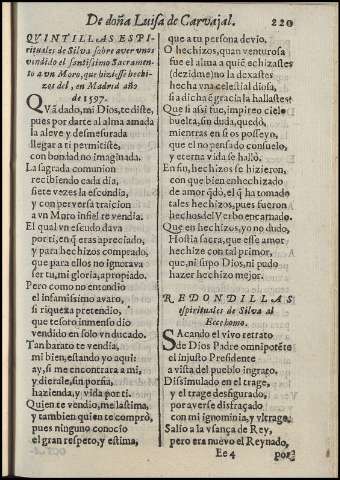 De doña Luisa de Carvajal. 220
QVINTILLAS ESPI-
rituales de Silva sobre aver vnos
vendido el santissimo Sacramen-
to a vn Moro, que hiziesse hechi-
zos del, en Madrid año
de 1597.
QVã dado, mi Dios, te diste,
pues por darte al alma amada
la aleve y desmesurada
llegar a ti permitiste,
con bondad no imaginada.
La sagrada comunion
recibiendo cada dia,
siete vezes la escondia,
y con perversa traicion
a vn Moro infiel te vendia.
El qual vn escudo dava
por ti, en q̃ eras apreciado,
y para hechizos comprado,
que para ellos no ignorava
ser tu, mi gloria, apropiado.
Pero como no entendio
el infamissimo avaro,
si riqueza pretendio,
que tesoro inmenso dio
vendido en solo vn ducado.
Tan barato te vendia,
mi bien, estando yo aqui:
ay, si me encontrara a mi,
y dierale, sin porfia,
hazienda, y vida por ti.
Quien te vendio, me lastima,
y tambien quien te comprò,
pues ninguno conocio
el gran respeto, y estima,
que a tu persona devio.
O hechizos, quan venturosa
fue el alma a quiẽ echizastes
(dezidme) no la dexastes
hecha vna celestial diosa,
si a dicha ẽ gracia la hallastes?
Que si assi fue, impireo cielo
buelta, sin duda, quedò,
mientras en si os posseyo,
que el no pensado consuelo,
y eterna vida se hallò.
En fin, hechizos se hizieron,
con que bien enhechizado
de amor q̃dò, el q̃ ha tomado
tales hechizos, pues fueron
hechos del Verbo encarnado.
Que en hechizos, yo no dudo,
Hostia sacra, que esse amor
hechize con tal primor,
que, ni supo Dios, ni pudo
hazer hechizo mejor.
REDONDILLAS
espirituales de Silva al
Eccehomo.
SAcando el vivo retrato
de Dios Padre omnipotẽte
el injusto Presidente
a vista del pueblo ingrato.
Dissimulado en el trage,
y el trage desfigurado,
por averse disfraçado
con mi ignominia, y vltrage.
Salio a la vsança de Rey,
pero era nuevo el Reynado,
Ee 4 porq̃